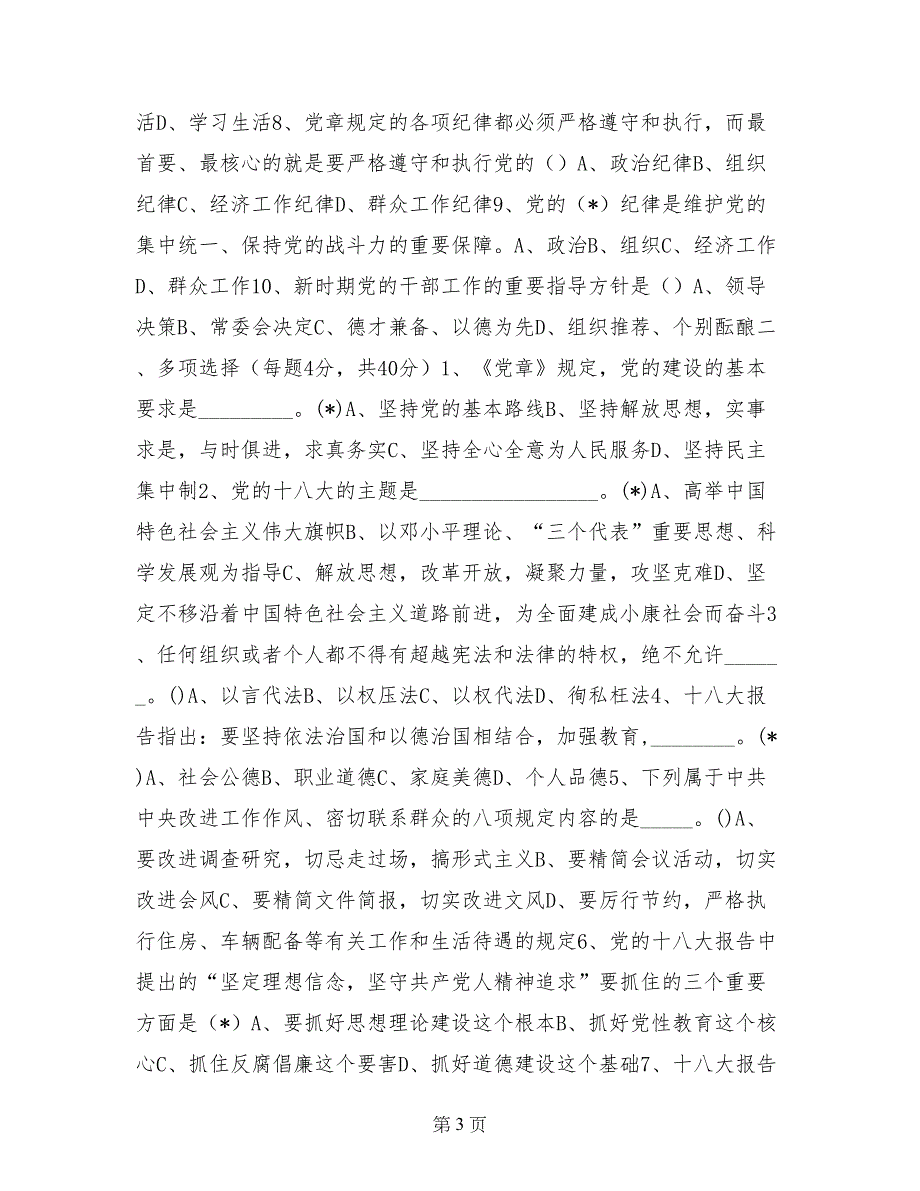 活D、学习生活8、党章规定的各项纪律都必须严格遵守和执行，而最
首要、最核心的就是要严格遵守和执行党的（）A、政治纪律B、组织
纪律C、经济工作纪律D、群众工作纪律9、党的（*）纪律是维护党的
集中统一、保持党的战斗力的重要保障。A、政治B、组织C、经济工作
D、群众工作10、新时期党的干部工作的重要指导方针是（）A、领导
决策B、常委会决定C、德才兼备、以德为先D、组织推荐、个别酝酿二
、多项选择（每题4分，共40分）1、《党章》规定，党的建设的基本
要求是_________。(*)A、坚持党的基本路线B、坚持解放思想，实事
求是，与时俱进，求真务实C、坚持全心全意为人民服务D、坚持民主
集中制2、党的十八大的主题是_________________。(*)A、高举中国
特色社会主义伟大旗帜B、以邓小平理论、“三个代表”重要思想、科
学发展观为指导C、解放思想，改革开放，凝聚力量，攻坚克难D、坚
定不移沿着中国特色社会主义道路前进，为全面建成小康社会而奋斗3
、任何组织或者个人都不得有超越宪法和法律的特权，绝不允许_____
_。()A、以言代法B、以权压法C、以权代法D、徇私枉法4、十八大报
告指出：要坚持依法治国和以德治国相结合，加强教育,________。(*
)A、社会公德B、职业道德C、家庭美德D、个人品德5、下列属于中共
中央改进工作作风、密切联系群众的八项规定内容的是_____。()A、
要改进调查研究，切忌走过场，搞形式主义B、要精简会议活动，切实
改进会风C、要精简文件简报，切实改进文风D、要厉行节约，严格执
行住房、车辆配备等有关工作和生活待遇的规定6、党的十八大报告中
提出的“坚定理想信念，坚守共产党人精神追求”要抓住的三个重要
方面是（*）A、要抓好思想理论建设这个根本B、抓好党性教育这个核
心C、抓住反腐倡廉这个要害D、抓好道德建设这个基础7、十八大报告
第 3 页